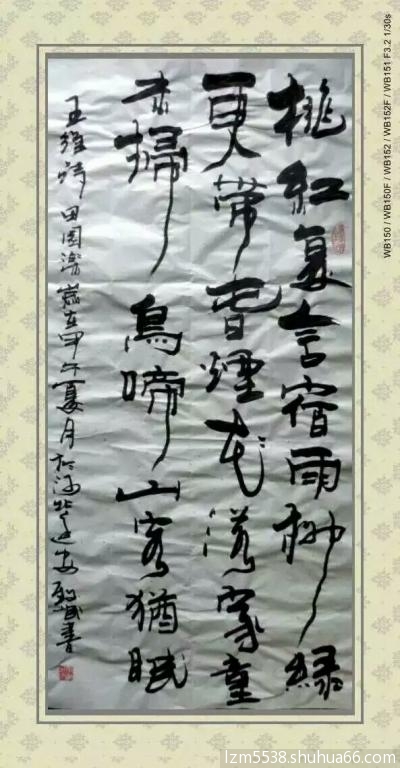 桃紅复含宿雨柳綠
更帶春煙花落家童
未掃鳥啼山客猶眠
王維詩田園樂歲在甲午夏月於河北遷安書
WB150 / WB150F / WB152 / WB152F / WB151 F3.2 1/30s
lzm5538.shuhua66.com